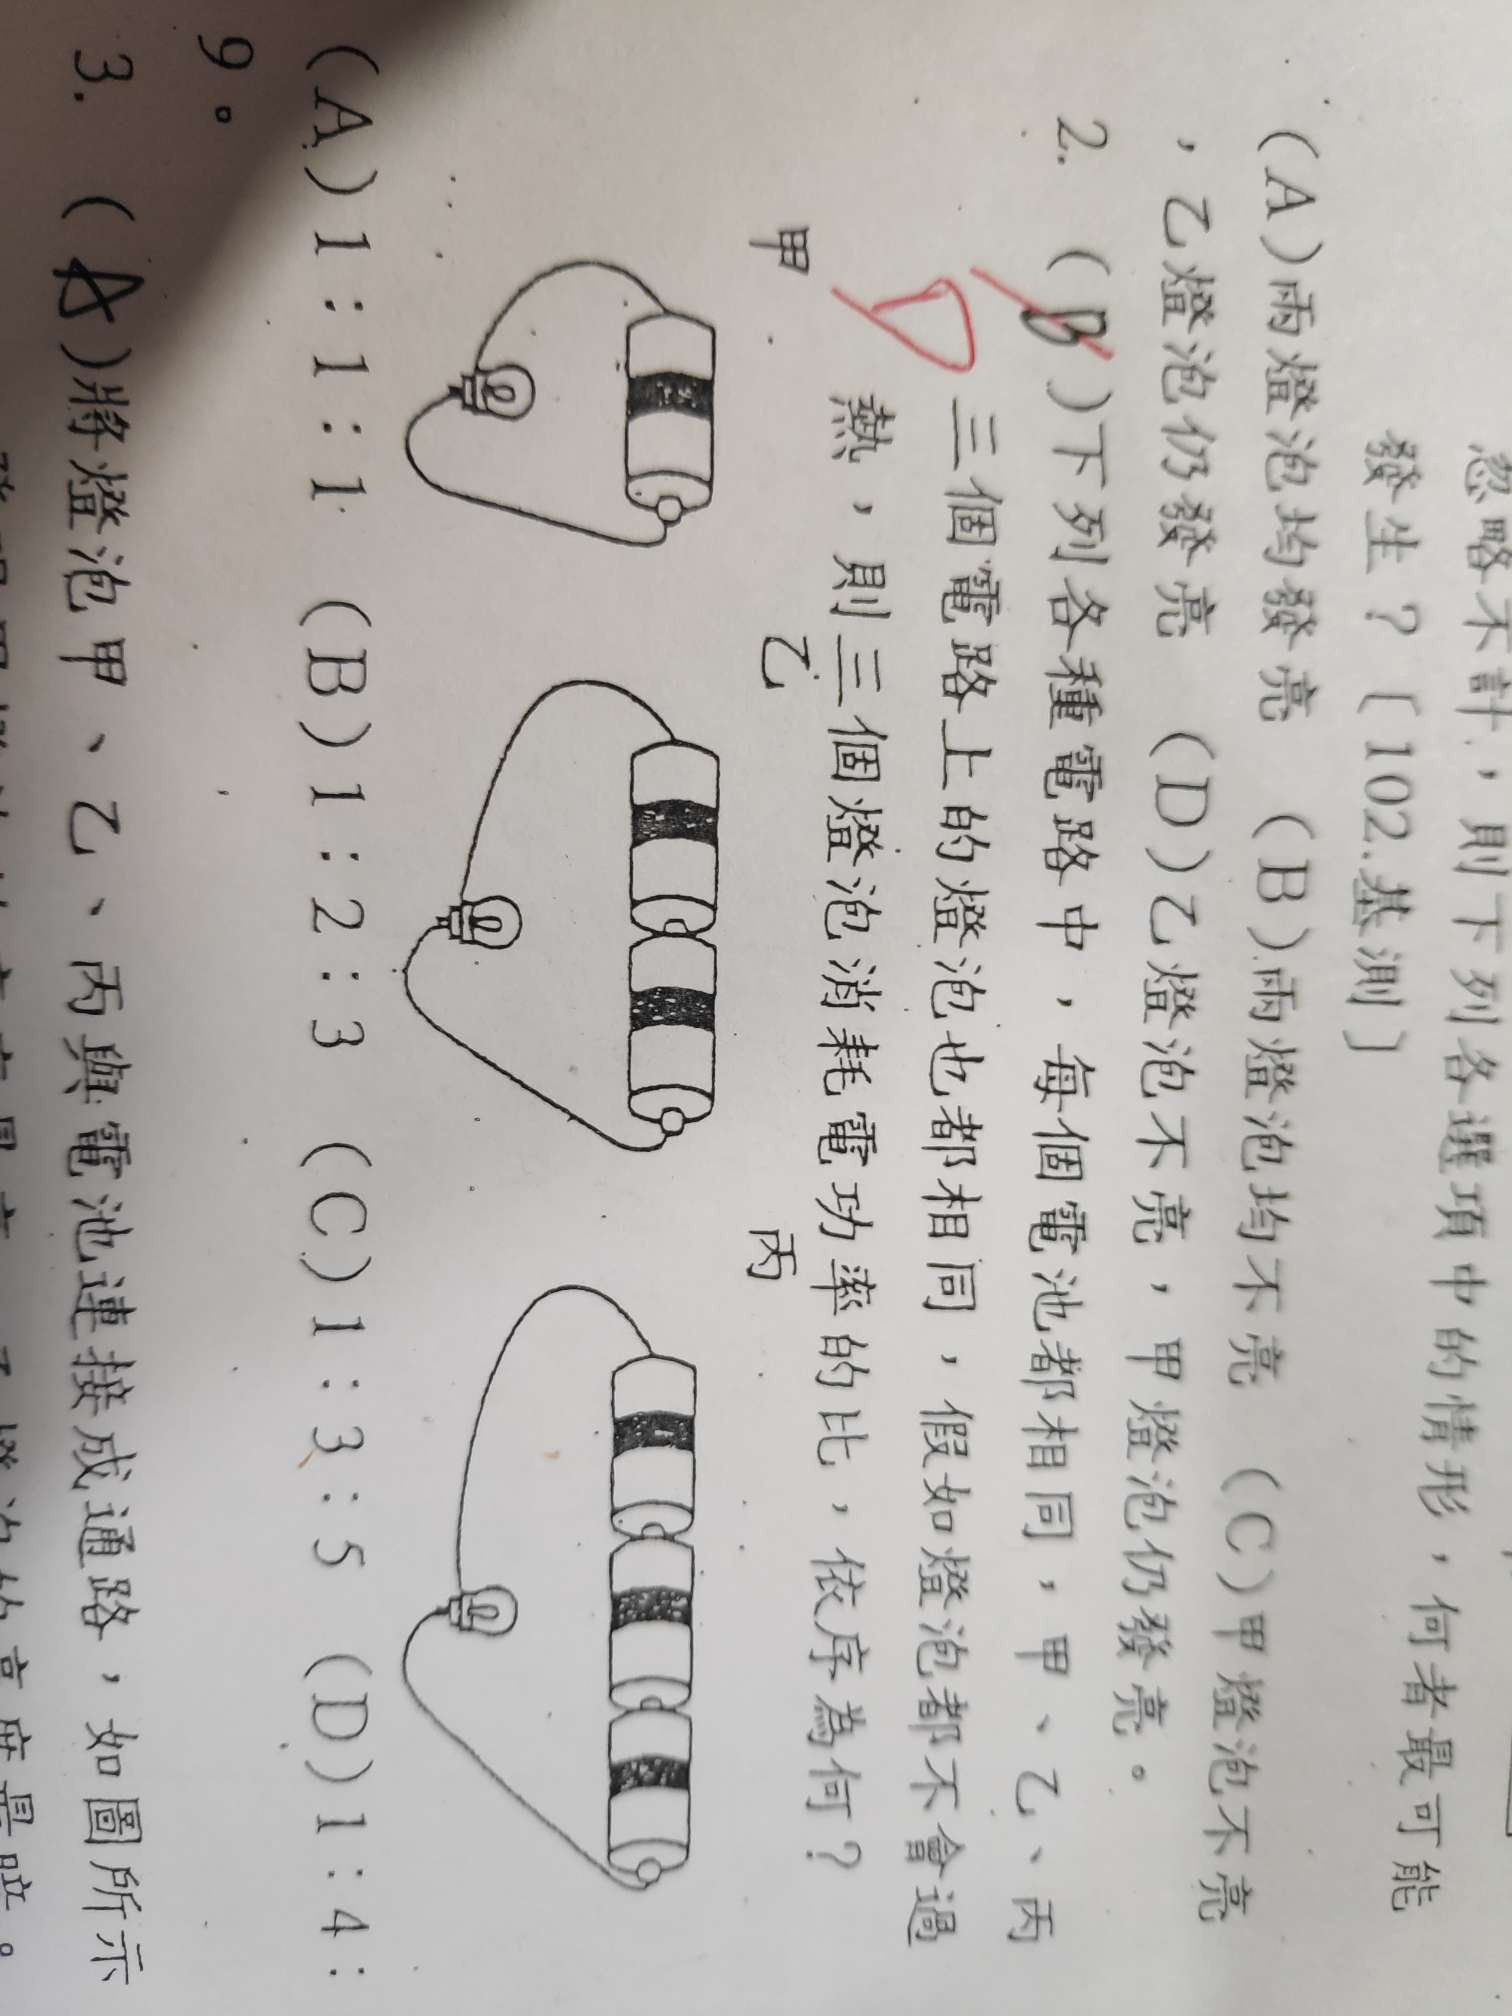 忽略不計，則下列各選項中的情形，何者最可能
發生？〔102.基測〕
(A)兩燈泡均發亮 (B)兩燈泡均不亮 (C)甲燈泡不亮
，乙燈泡仍發亮 (D)乙燈泡不亮，甲燈泡仍發亮。
2. (B)下列各種電路中，每個電池都相同，甲、乙、丙
三個電路上的燈泡也都相同，假如燈泡都不會過
熱，則三個燈泡消耗電功率的比，依序為何？
D
甲 乙 丙
(A)1：1：1 (B)1：2：3 (C)1：3：5 (D)1：4：
9。
3. (A)將燈泡甲、乙、丙與電池連接成通路，如圖所示